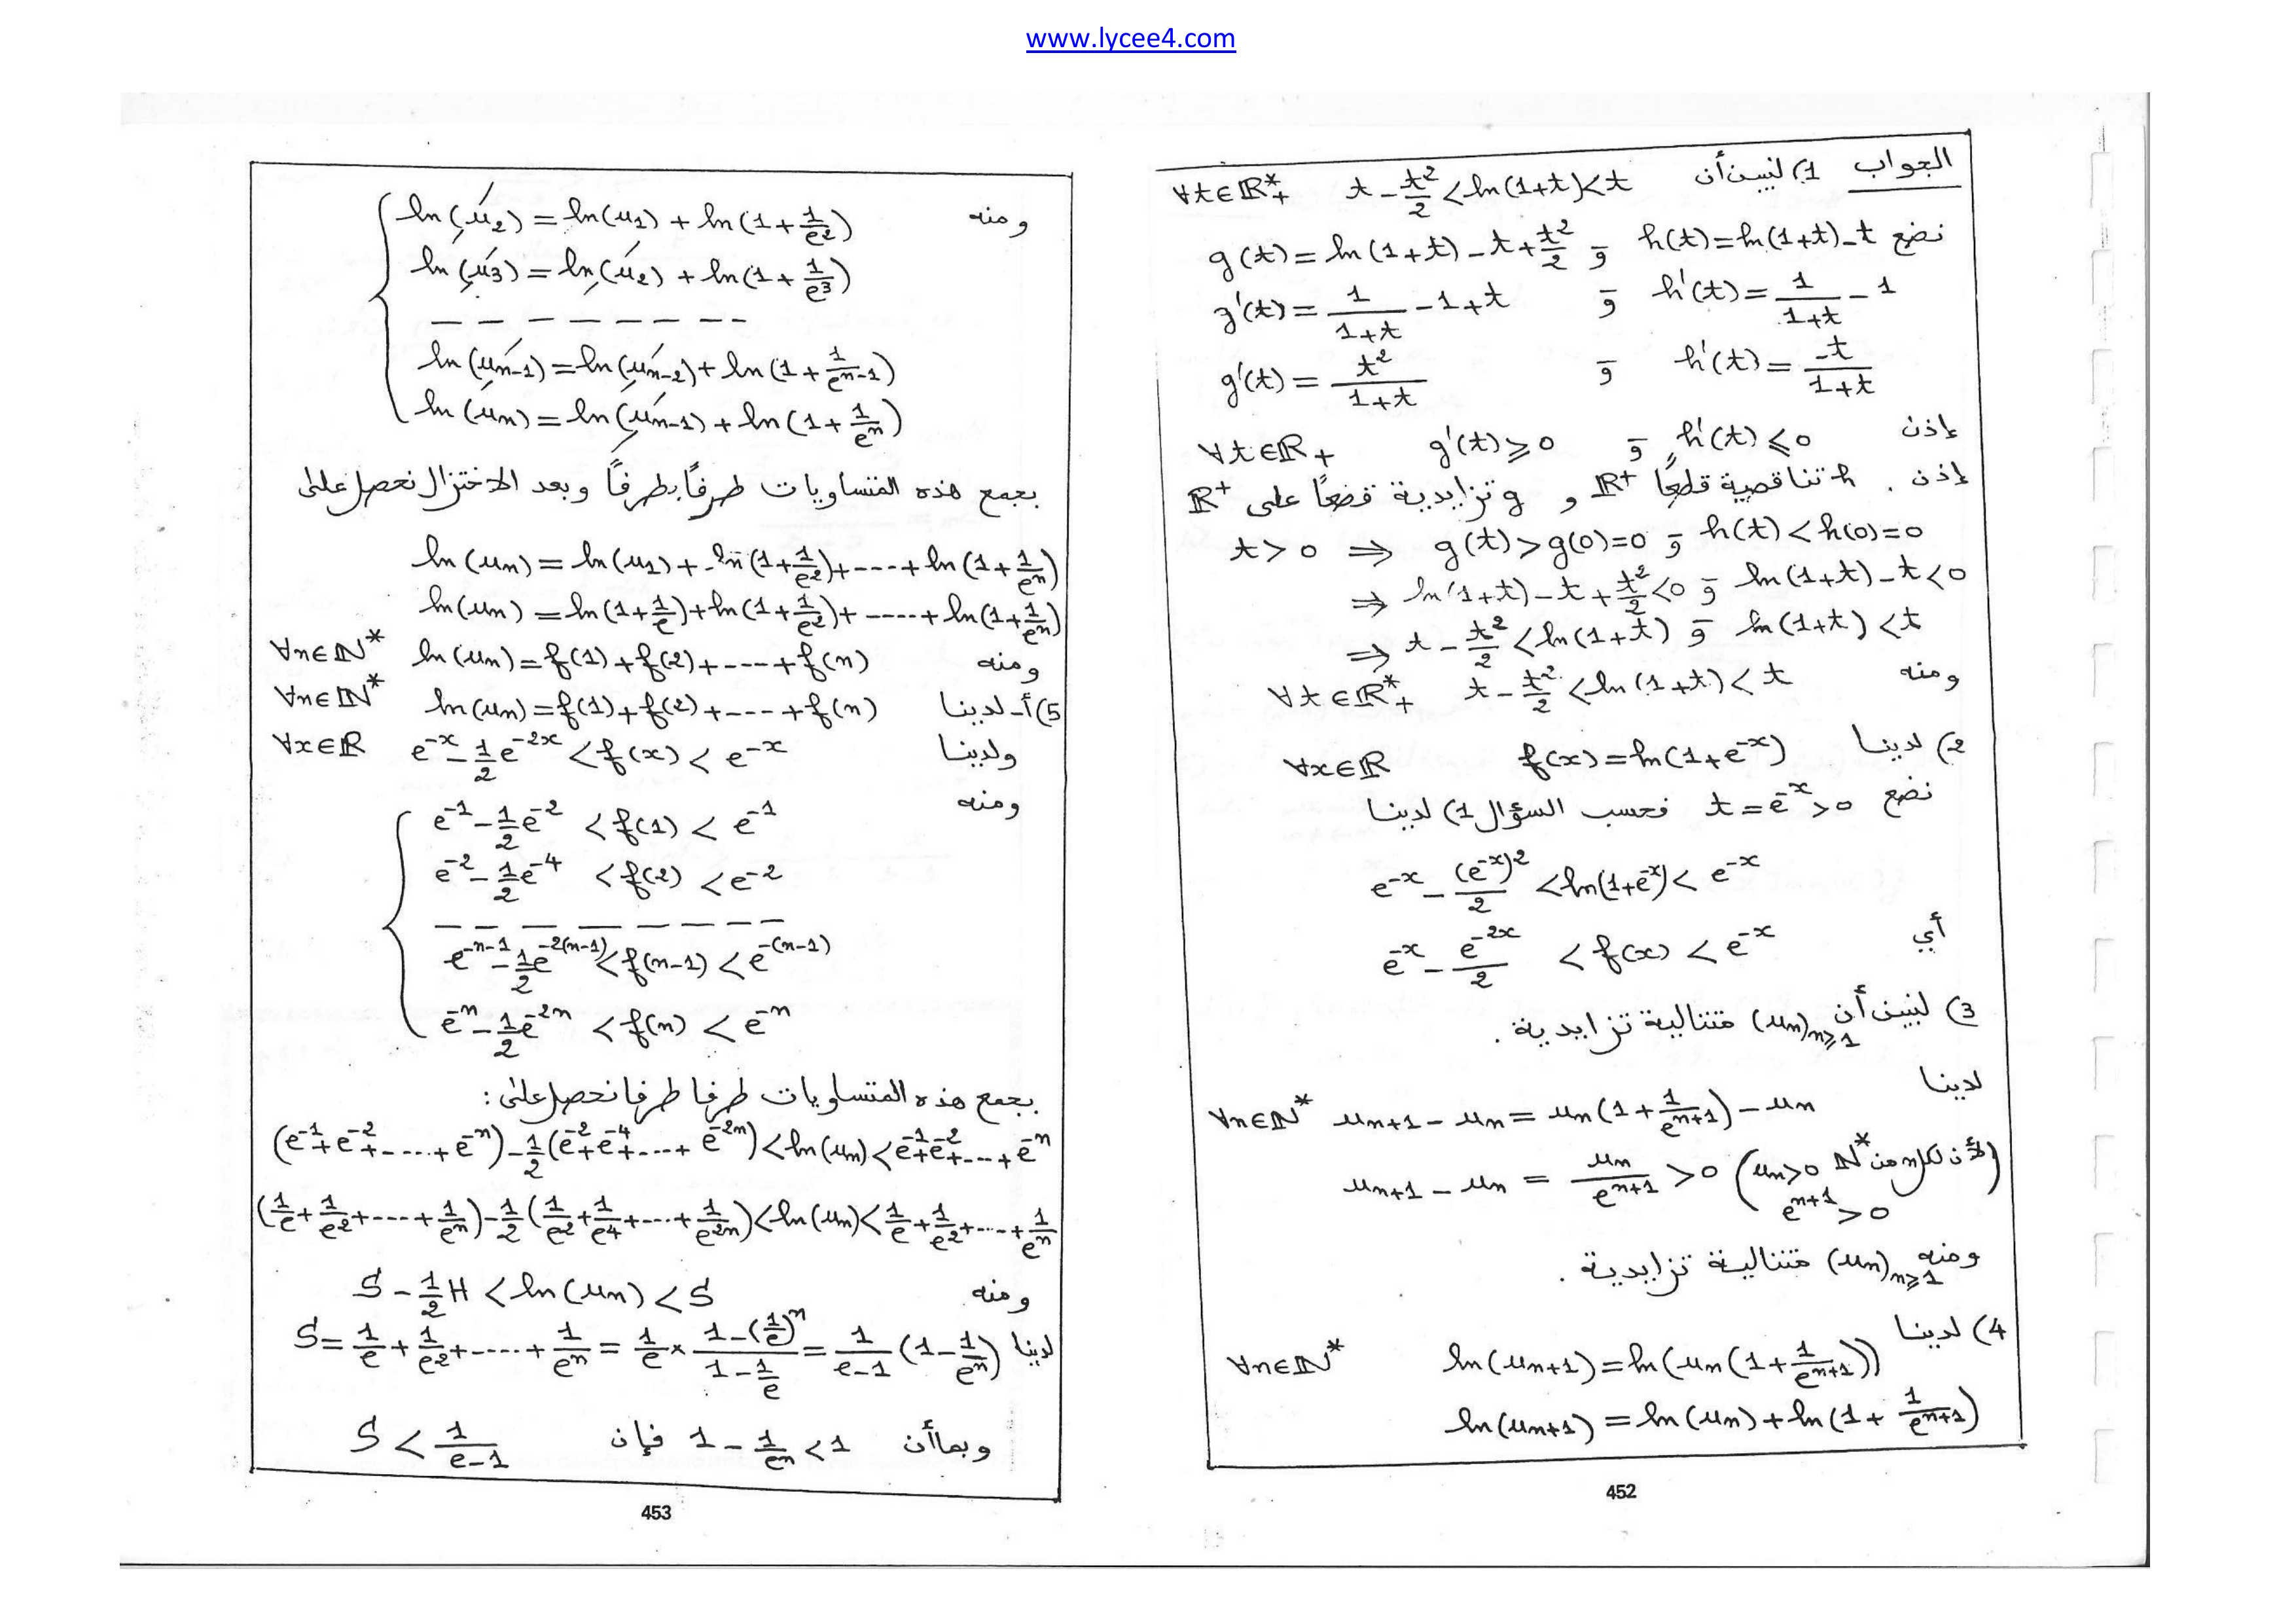 www.lycee4.com
الجواب 1) لنبين أن t - t²/2 < ln(1+t) < t ∀t∈ℝ*₊
نضع h(t)=ln(1+t)-t و g(t)=ln(1+t)-t+t²/2
h'(t)=1/(1+t) - 1 و g'(t)=1/(1+t) -1+t
h'(t)=-t/(1+t) و g'(t)=t²/(1+t)
إذن h'(t)⩽0 و g'(t)⩾0 ∀t∈ℝ₊
إذن . h تناقصية قطعًا ℝ⁺ و g تزايدية قطعًا على ℝ⁺
t>0 ⇒ g(t)>g(0)=0 و h(t)<h(0)=0
⇒ ln(1+t)-t+t²/2<0 و ln(1+t)-t<0
⇒ t - t²/2 < ln(1+t) و ln(1+t)<t
ومنه t - t²/2 < ln(1+t) < t ∀t∈ℝ*₊
2) لدينا f(x)=ln(1+e^(-x)) ∀x∈ℝ
نضع t=e^(-x)>0 فحسب السؤال 1) لدينا
e^(-x) - (e^(-x))²/2 < ln(1+e^(-x)) < e^(-x)
أي e^(-x) - e^(-2x)/2 < f(x) < e^(-x)
3) لنبين أن (un)n⩾1 متتالية تزايدية .
لدينا
∀n∈ℕ* un+1 - un = un(1+1/e^(n+1)) - un
un+1 - un = un/e^(n+1) > 0 (لأن لكل n من ℕ* un>0 e^(n+1)>0)
ومنه (un)n⩾1 متتالية تزايدية .
4) لدينا ln(un+1)=ln(un(1+1/e^(n+1))) ∀n∈ℕ*
ln(un+1)=ln(un)+ln(1+1/e^(n+1))
452
ومنه ln(u2)=ln(u1)+ln(1+1/e²)
ln(u3)=ln(u2)+ln(1+1/e³)
— — — — — — — —
ln(un-1)=ln(un-2)+ln(1+1/e^(n-1))
ln(un)=ln(un-1)+ln(1+1/e^n)
بجمع هذه المتساويات طرفًا بطرفًا وبعد الاختزال نحصل على
ln(un)=ln(u1)+ln(1+1/e²)+----+ln(1+1/e^n)
ln(un)=ln(1+1/e)+ln(1+1/e²)+-----+ln(1+1/e^n)
ومنه ln(un)=f(1)+f(2)+----+f(n) ∀n∈ℕ*
5) أ- لدينا ln(un)=f(1)+f(2)+----+f(n) ∀n∈ℕ*
ولدينا e^(-x) - 1/2 e^(-2x) < f(x) < e^(-x) ∀x∈ℝ
ومنه
e^(-1) - 1/2 e^(-2) < f(1) < e^(-1)
e^(-2) - 1/2 e^(-4) < f(2) < e^(-2)
— — — — — — — — —
e^(-n-1) - 1/2 e^(-2(n-1)) < f(n-1) < e^(-(n-1))
e^(-n) - 1/2 e^(-2n) < f(n) < e^(-n)
بجمع هذه المتساويات طرفا طرفا نحصل على :
(e^(-1)+e^(-2)+----+e^(-n)) - 1/2(e^(-2)+e^(-4)+----+e^(-2n)) < ln(un) < e^(-1)+e^(-2)+----+e^(-n)
(1/e+1/e²+----+1/e^n) - 1/2(1/e²+1/e⁴+----+1/e^(2n)) < ln(un) < 1/e+1/e²+----+1/e^n
ومنه S - 1/2 H < ln(un) < S
لدينا S=1/e+1/e²+-----+1/e^n = 1/e × (1-(1/e)^n)/(1-1/e) = 1/(e-1) (1-1/e^n)
وبما أن 1 - 1/e^n < 1 فإن S < 1/(e-1)
453